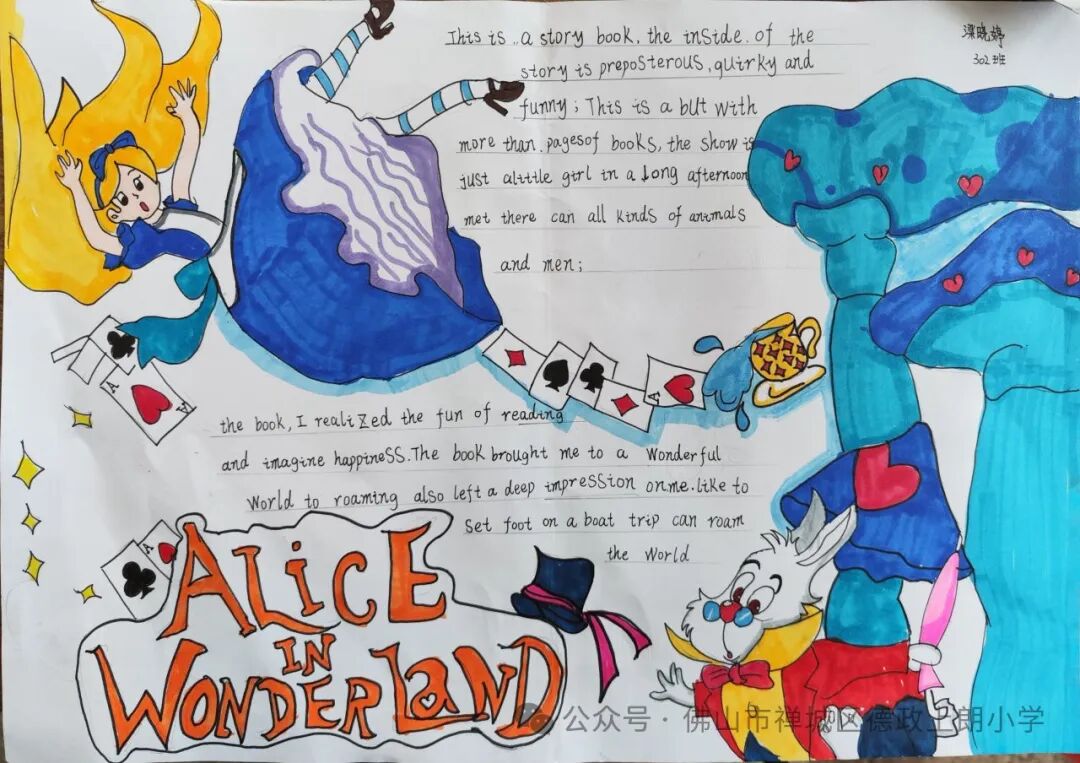 This is a story book, the inside of the
story is preposterous, quirky and
funny; This is a but with
more than pagesof books, the show is
just alittle girl in a long afternoon
met there can all kinds of animals
and men;
梁晓婷
302班
A
A
A
the book, I realized the fun of reading
and imagine happiness. The book brought me to a Wonderful
World to roaming also left a deep impression on me. like to
Set foot on a boat trip can roam
the World
A
ALiCE
IN
WONDERLaND
公众号 · 佛山市禅城区德政上朗小学